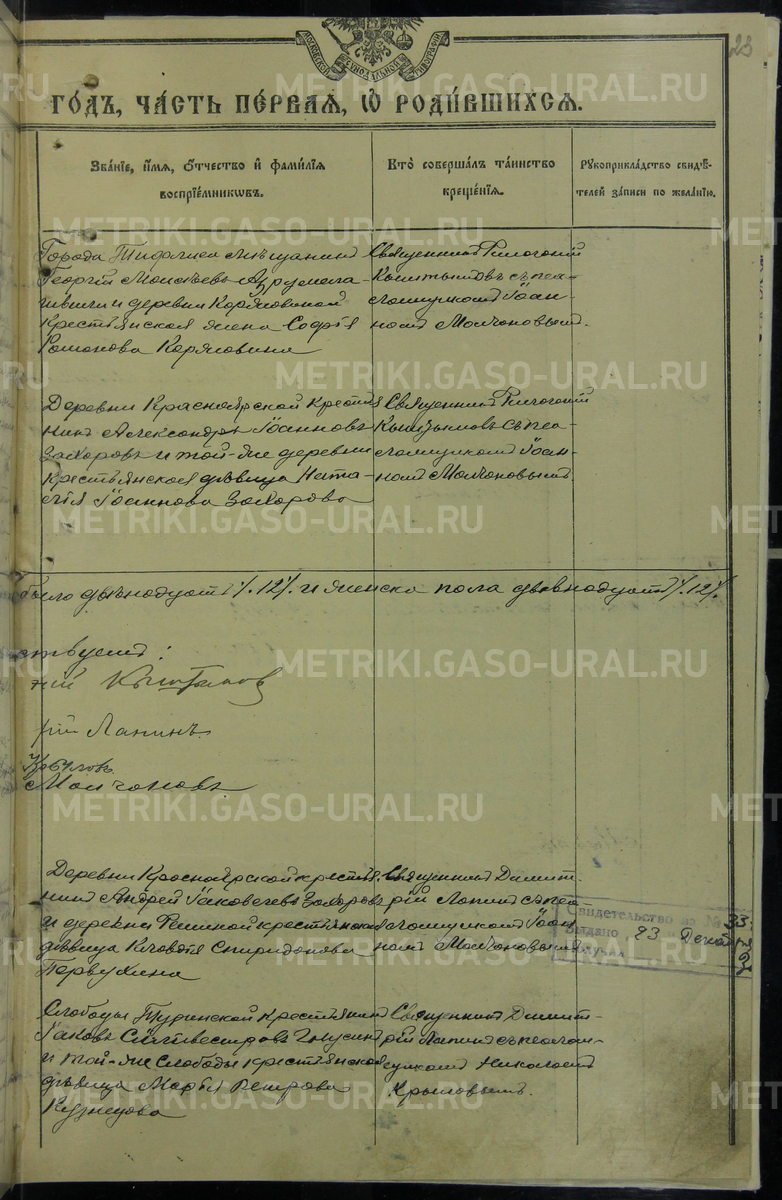 23
МОСКОВСКОЙ СѴНОДАЛЬНОЙ ТИПОГРАФІИ
ГОДЪ, ЧАСТЬ ПЕРВАЯ, Ѡ РОДИВШИХСЯ.
Званіе, имя, отчество и фамилія воспріемниковъ.
Кто совершалъ таинство крещенія.
Рукоприкладство свидѣтелей записи по желанію.
Города Тифлиса мѣщанинъ
Георгій Моисѣевъ
и деревни
крестьянская жена Софія
Романова
Священникъ
съ пса-
ломщикомъ Іоан-
номъ Молчановымъ.
Деревни Красноярской крестья
нинъ Александръ Іоанновъ
Захаровъ и той-же деревни
крестьянская дѣвица Ната-
лія Іоаннова Захарова
Священникъ
съ пса-
ломщикомъ Іоан-
номъ Молчановымъ
было двѣнадцать /.12/. и женска пола двѣнадцать /.12/.
ствуемъ:
рій Лапинъ.
Крыловъ
Молчановъ
Деревни Красноярской крестья
нинъ Андрей Іаковлевъ Захаровъ
и деревни крестьянская
дѣвица Клавдія Спиридонова
Первухина
Священникъ Димит-
рій Лапинъ съ пса-
ломщикомъ Іоан-
номъ Молчановымъ
Свидетельство за № 33
Выдано 23 Декабря
Слободы Туринской крестьянинъ
Іаковъ Сильвестровъ
и той-же слободы крестьянская
дѣвица Марія Петрова
Кузнецова
Священникъ Димит-
рій Лапинъ съ псалом-
щикомъ Николаемъ
Крыловымъ.
METRIKI.GASO-URAL.RU